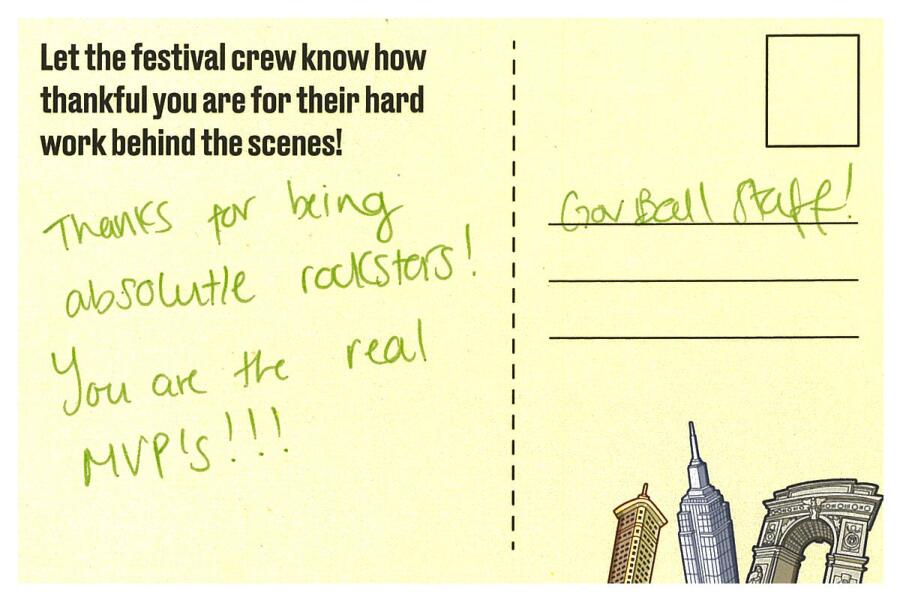 Let the festival crew know how
thankful you are for their hard
work behind the scenes!
Thanks for being
absolutle rockstars!
You are the real
MVP's!!!
Gov Ball Staff!